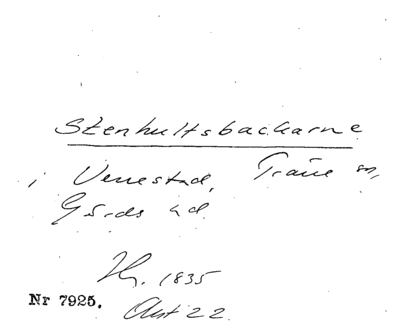 Stenhultsbackarne
i Venestad, Träne sn,
Gärds hd
Hy. 1835
Nr 7925. Akt 22